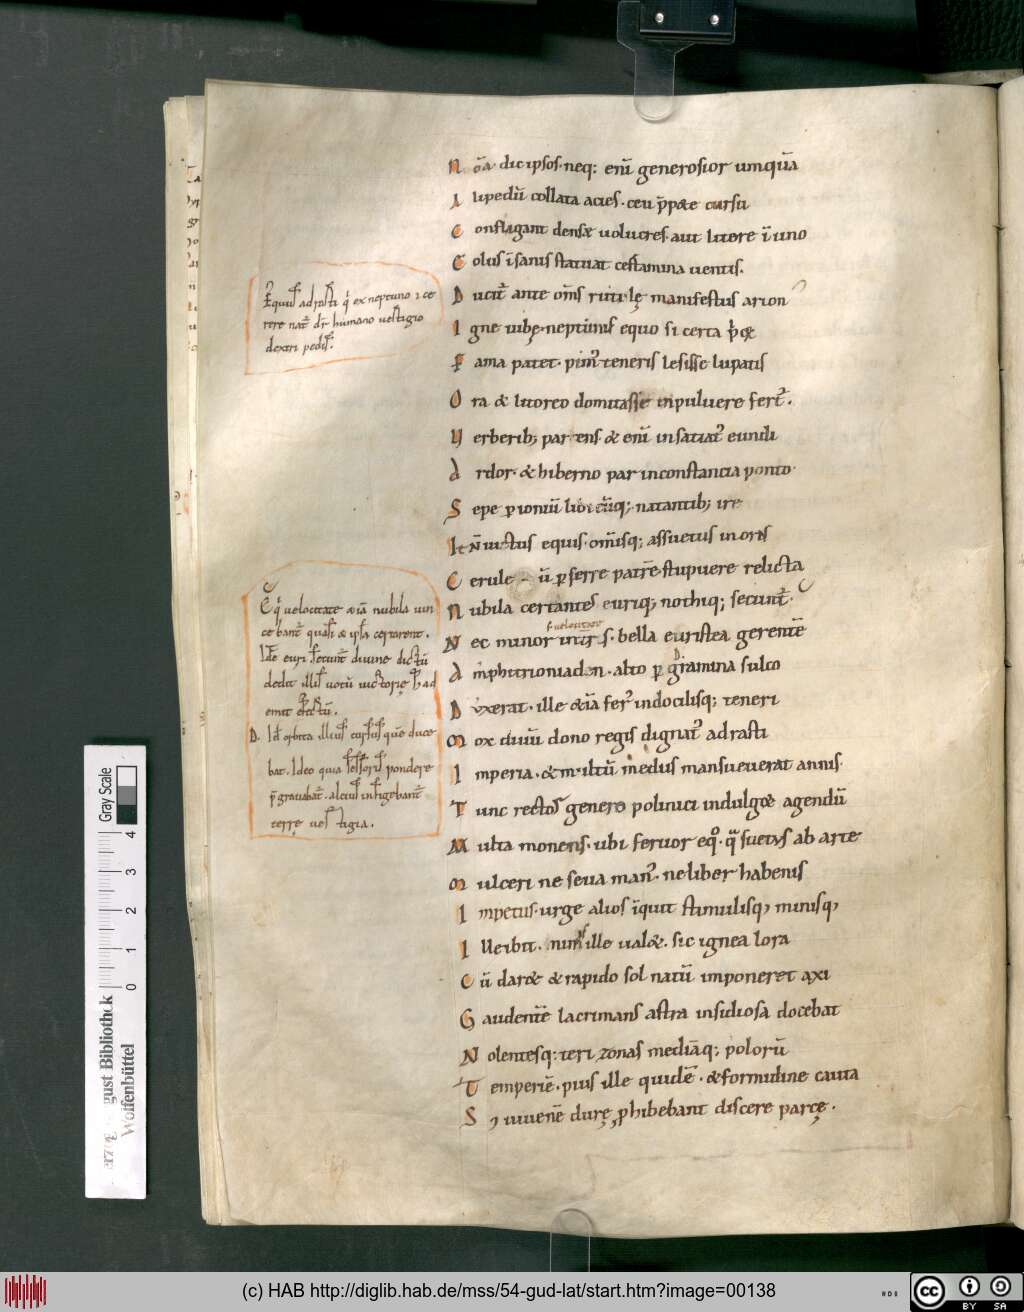 N o͞a. dic ipsos. neq; eni͞ generosior umqua͞
A lipedu͞ collata acies. ceu p͞p&e cursu
C onfligant densæ uolucres. aut litore i͞ uno
E olus i͞sanis statuat certamina uentis.
D ucit᷑ ante om͞s rutilę manifestus arion
I gne iubę. neptunus equo si certa p͞&
F ama patet. pim᷑ teneris lesisse lupatis
O ra & litoreo domitasse inpuluere fert᷑.
U erberib; parcens. & eni͞ insatiat᷑ eundi
A rdor. & hiberno par inconstantia ponto.
S epe p ioniu͞ libicu͞q; natantib; ire
I n͞uictus equis. om͞isq; assuetus in oris
C erule u͞ pferre patre͞ stupuere relicta
N ubila certantes euriq; nothiq; secunt᷑.
N ec minor bella euristea gerente͞
A mphitrioniaden. alto p gramina sulco
D uxerat. ille &ia͞ fer᷑ indocilisq; teneri
M ox diuu͞ dono regis dignat᷑ adrasti
I mperia. & multu͞ medus mansueuerat annis.
T unc rectos genero polinici indulg& agendu͞
M ulta monens. ubi feruor eq͛. q͞ suetus ab arte
M ulceri ne seua man᷑. ne liber habenis
I mpetus. urge alios i͞quit stimulisq; minisq;
I lle ibit. ille ual&. sic ignea lora
C u͞ dar& & rapido sol natu͞ imponeret axi
G audente͞ lacrimans astra insidiosa docebat
N olentesq; teri zonas media͞q; poloru͞
T emperie͞. pius ille quide͞. & formidine cauta
S ; iuuene͞ durę phibebant discere parcę.
equus adrasti q͛ ex neptuno & ce
rere nat᷑ dr͞ humano uestigio
dextri pedis.
q͛ velocitate &ia͞ nubila uin
cebant᷑ quasi & ipsa certarent.
Id͞e euri secunt᷑ diuine dictu͞
dedit illis uotu͞ uictorię h͞ ad
emit effectu͞.
D. Id͞ orbita illius cursus que͞ duce
bat. Ideo quia sessoris pondere
p͞grauabat᷑. alcius infigebant᷑
terrę uestigia.
Gray Scale
0 1 2 3 4
gust Bibliothek
Wolfenbüttel
(c) HAB http://diglib.hab.de/mss/54-gud-lat/start.htm?image=00138
cc BY SA